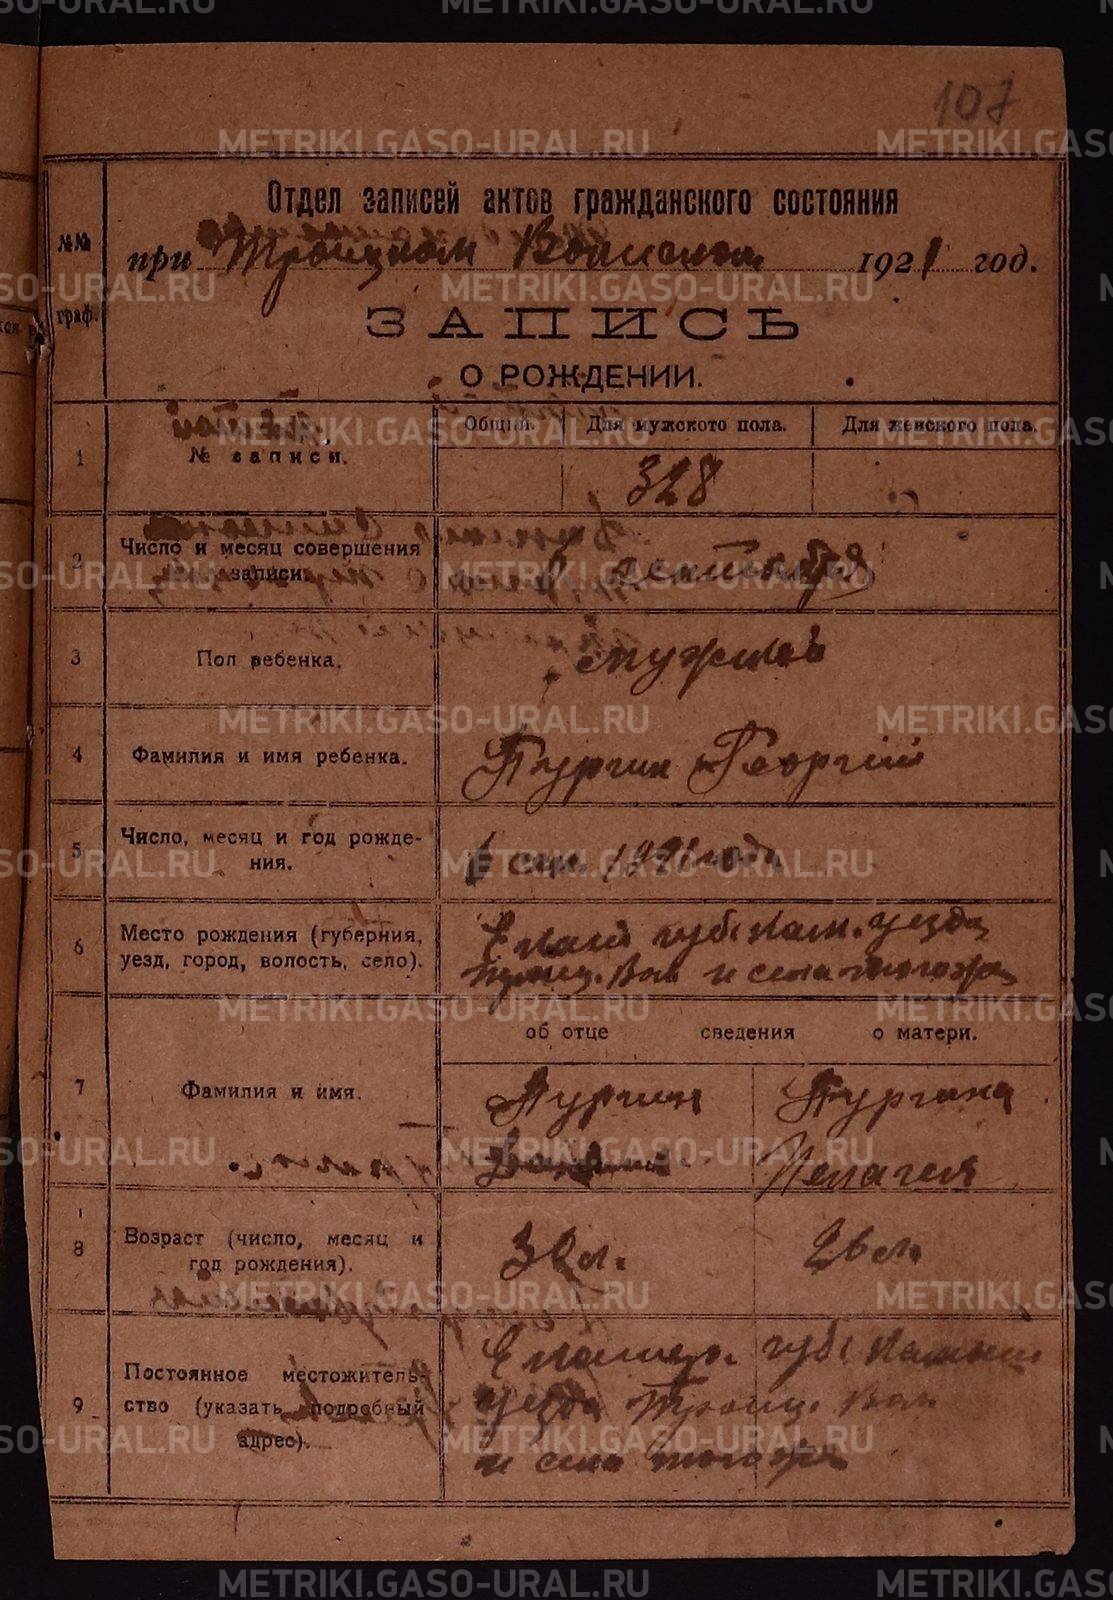 107
Отдел записей актов гражданского состояния
№№ граф.
при Троицком Волисполк 1921 год.
ЗАПИСЬ
О РОЖДЕНИИ.
1
№ записи.
Общий.
Для мужского пола.
Для женского пола.
328
2
Число и месяц совершения
записи.
сентября
3
Пол ребенка.
мужской
4
Фамилия и имя ребенка.
Пургин Георгий
5
Число, месяц и год рожде-
ния.
1 сен. 1921 года
6
Место рождения (губерния,
уезд, город, волость, село).
губ. Кам. уезда
Троиц. Вол и села того же
об отце сведения о матери.
7
Фамилия и имя.
Пургин
Пургина
Пелагея
8
Возраст (число, месяц и
год рождения).
30 л.
26 л.
9
Постоянное местожитель-
ство (указать подробный
адрес).
губ. Камыш
уезда Троиц. Вол.
и села того же
METRIKI.GASO-URAL.RU